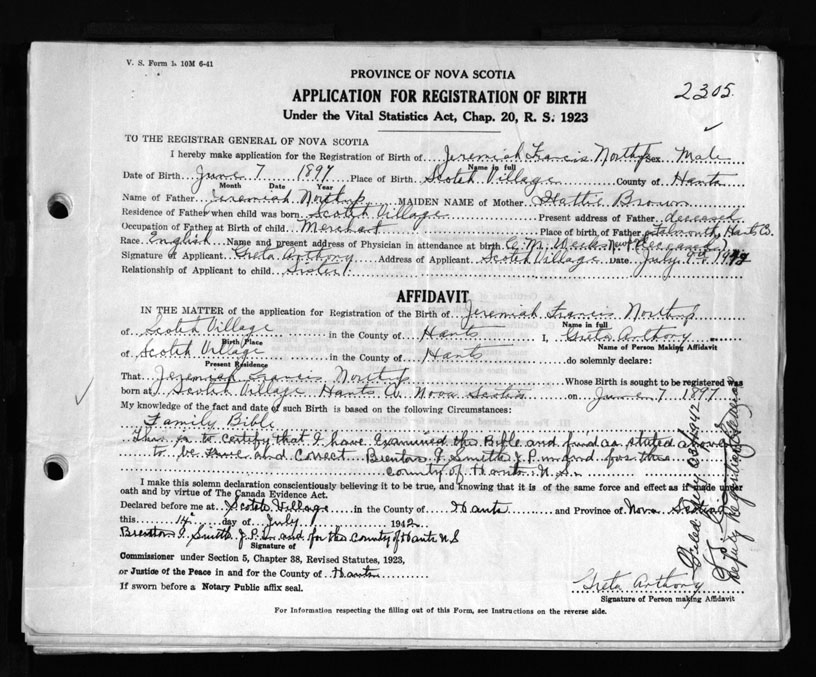 V. S. Form b. 10M 6-41
PROVINCE OF NOVA SCOTIA
2305.
APPLICATION FOR REGISTRATION OF BIRTH
Under the Vital Statistics Act, Chap. 20, R. S. 1923
TO THE REGISTRAR GENERAL OF NOVA SCOTIA
I hereby make application for the Registration of Birth of Jeremiah Francis Northup Sex Male
Name in full
Date of Birth June 7 1897 Place of Birth Scotch Village County of Hants
Month Date Year
Name of Father Jeremiah Northup MAIDEN NAME of Mother Hattie Brown
Residence of Father when child was born Scotch Village Present address of Father deceased
Occupation of Father at Birth of child Merchant Place of birth of Father Falmouth, Hants Co.
Race English Name and present address of Physician in attendance at birth C. M. Weeks Newport (Deceased)
Signature of Applicant Greta Anthony Address of Applicant Scotch Village Date July 9th 1942
Relationship of Applicant to child Sister
AFFIDAVIT
IN THE MATTER of the application for Registration of the Birth of Jeremiah Francis Northup
Name in full
of Scotch Village in the County of Hants I, Greta Anthony
Birth Place Name of Person Making Affidavit
of Scotch Village in the County of Hants do solemnly declare:
Present Residence
That Jeremiah Francis Northup Whose Birth is sought to be registered was
born at Scotch Village Hants Co Nova Scotia on June 7 1897
My knowledge of the fact and date of such Birth is based on the following Circumstances:
Family Bible
This is to certify that I have Examined the Bible and find as stated above
to be true and correct Brenton I. Smith J.P. in and for the
county of Hants N.S.
I make this solemn declaration conscientiously believing it to be true, and knowing that it is of the same force and effect as if made under
oath and by virtue of The Canada Evidence Act.
Declared before me at Scotch Village in the County of Hants and Province of Nova Scotia
this 14 day of July 1942
Brenton I. Smith J.P. in and for the County of Hants N.S
Signature of
Commissioner under Section 5, Chapter 38, Revised Statutes, 1923,
or Justice of the Peace in and for the County of Hants
If sworn before a Notary Public affix seal.
Greta Anthony
Signature of Person making Affidavit
For Information respecting the filling out of this Form, see Instructions on the reverse side.
Filed July 1942
Deputy Registrar General